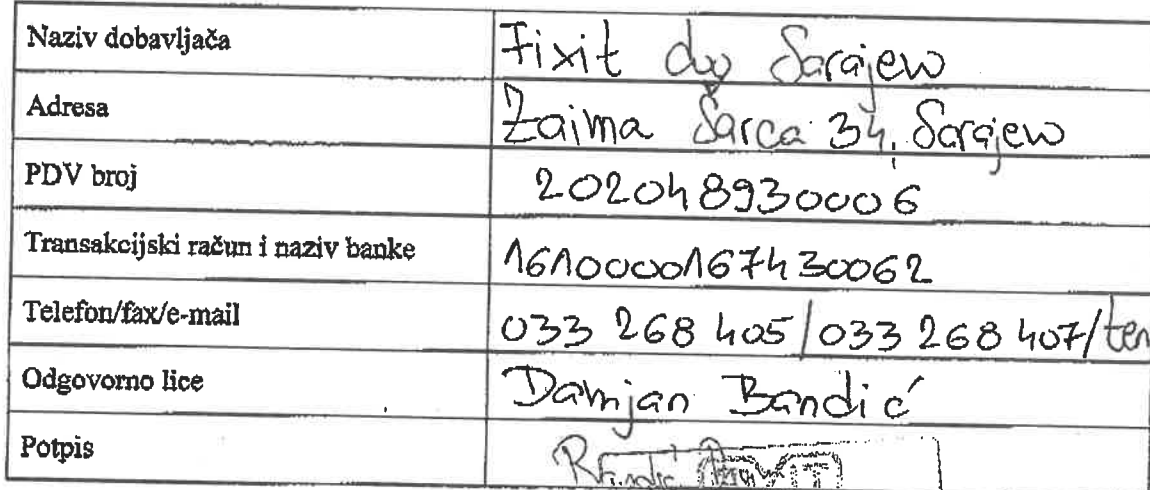 Naziv dobavljača Fixit doo Sarajevo
Adresa Zaima Šarca 34, Sarajevo
PDV broj 202048930006
Transakcijski račun i naziv banke 1610000167430062
Telefon/fax/e-mail 033 268 405/033 268 407/ten
Odgovorno lice Damjan Bandić
Potpis